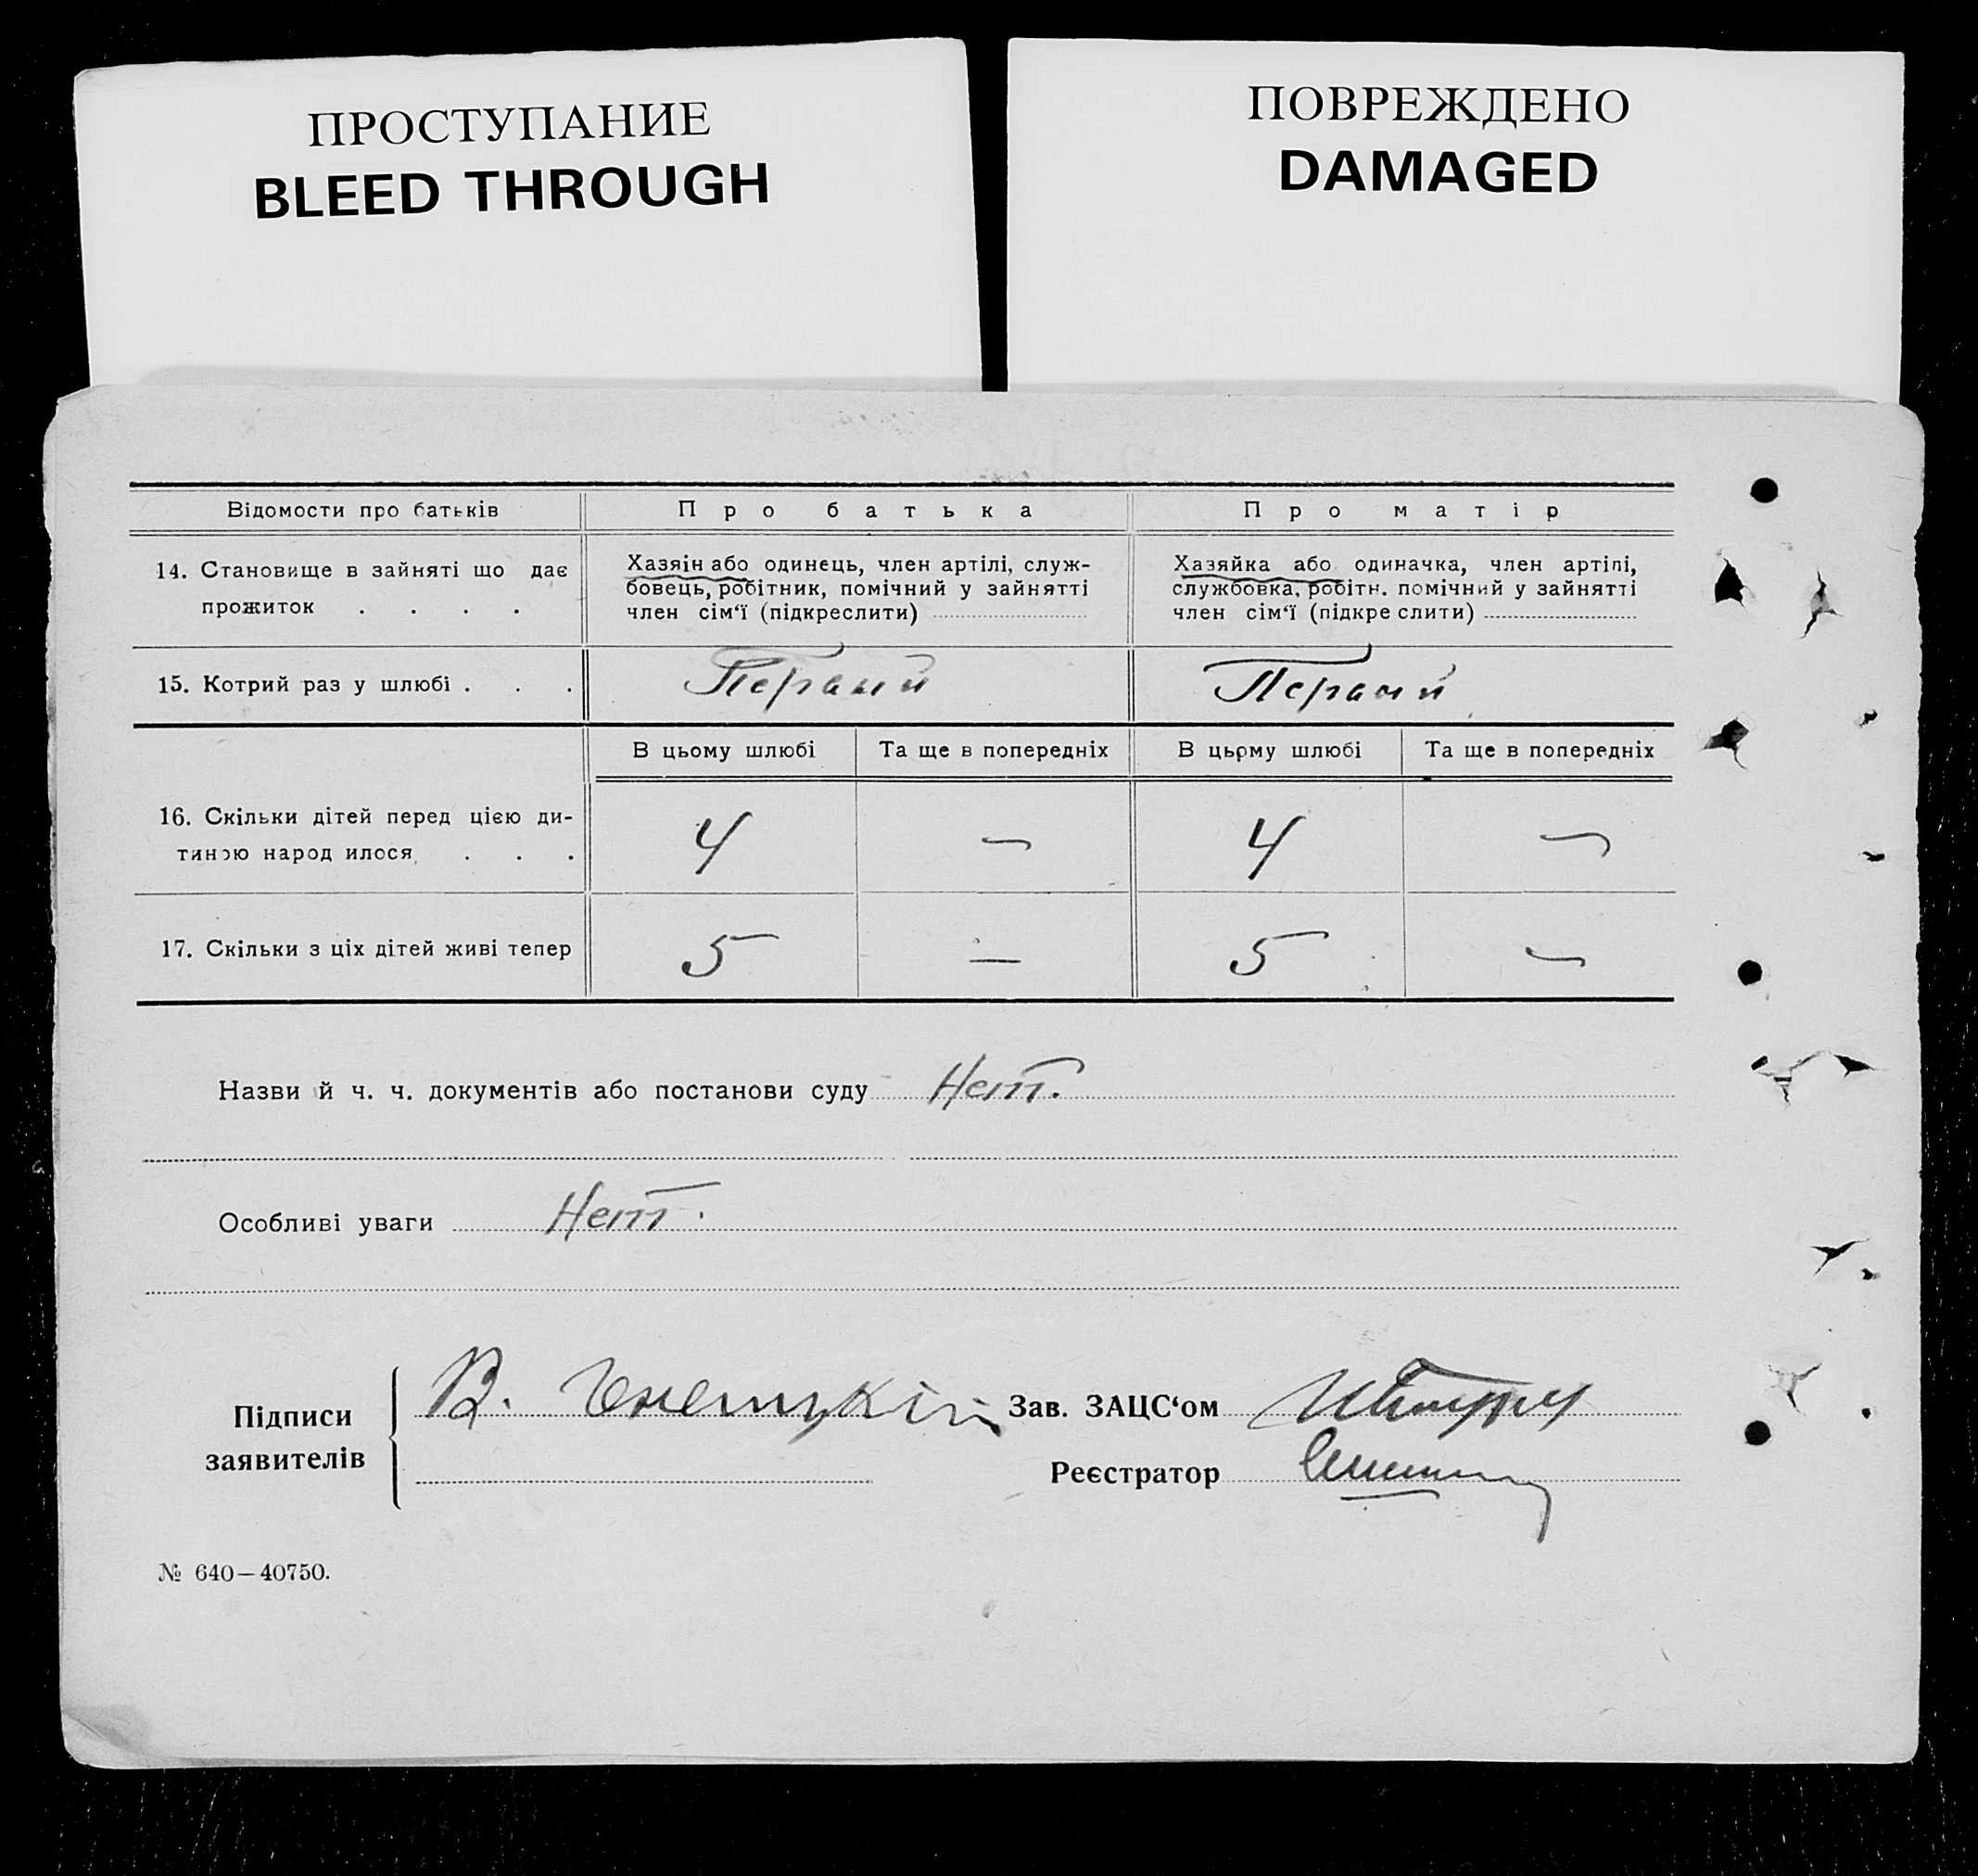 ПРОСТУПАНИЕ
BLEED THROUGH
ПОВРЕЖДЕНО
DAMAGED
Відомости про батьків
Про батька
Про матір
14. Становище в зайняті що дає
прожиток . . . .
Хазяін або одинець, член артілі, служ-
бовець, робітник, помічний у зайнятті
член сім‘ї (підкреслити)
Хазяйка або одиначка, член артілі,
службовка, робітн. помічний у зайнятті
член сім‘ї (підкреслити)
15. Котрий раз у шлюбі . . .
Первий
Первий
В цьому шлюбі
Та ще в попередніх
В цьому шлюбі
Та ще в попередніх
16. Скільки дітей перед цією ди-
тиною народилося . . .
4
—
4
—
17. Скільки з ціх дітей живі тепер
5
—
5
—
Назви й ч. ч. документів або постанови суду Нет.
Особливі уваги Нет.
Підписи
заявителів
В.
Зав. ЗАЦС‘ом
Реєстратор
№ 640—40750.